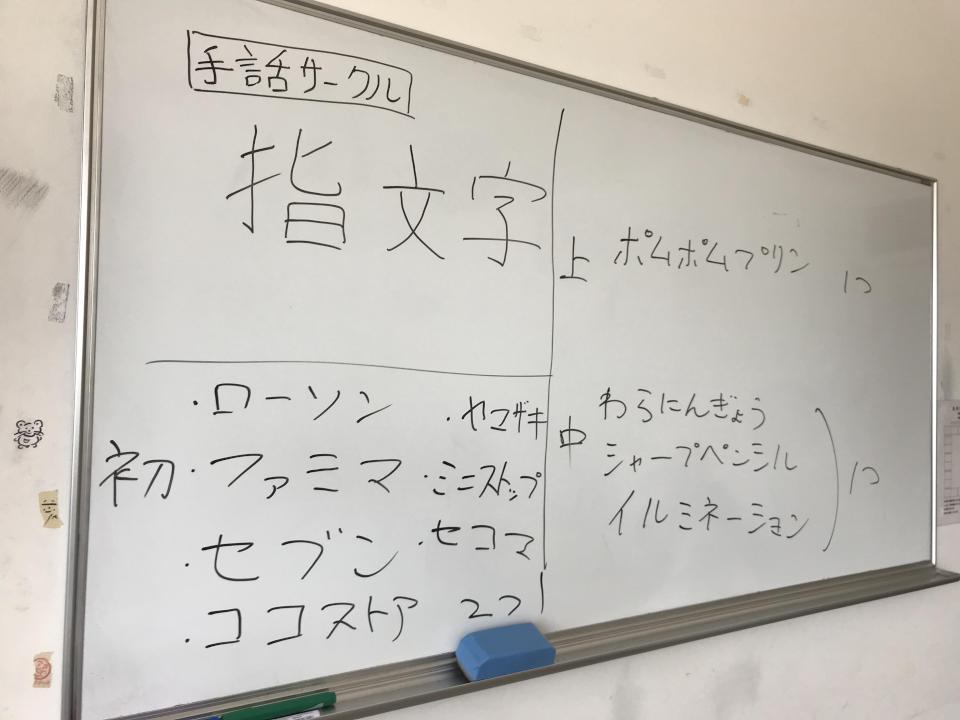 手話サークル
指文字
初
・ローソン
・ファミマ
・セブン
・ココストア
・ヤマザキ
・ミニストップ
・セコマ
2つ
上 ポムポムプリン 1つ
中
わらにんぎょう
シャープペンシル
イルミネーション
1つ